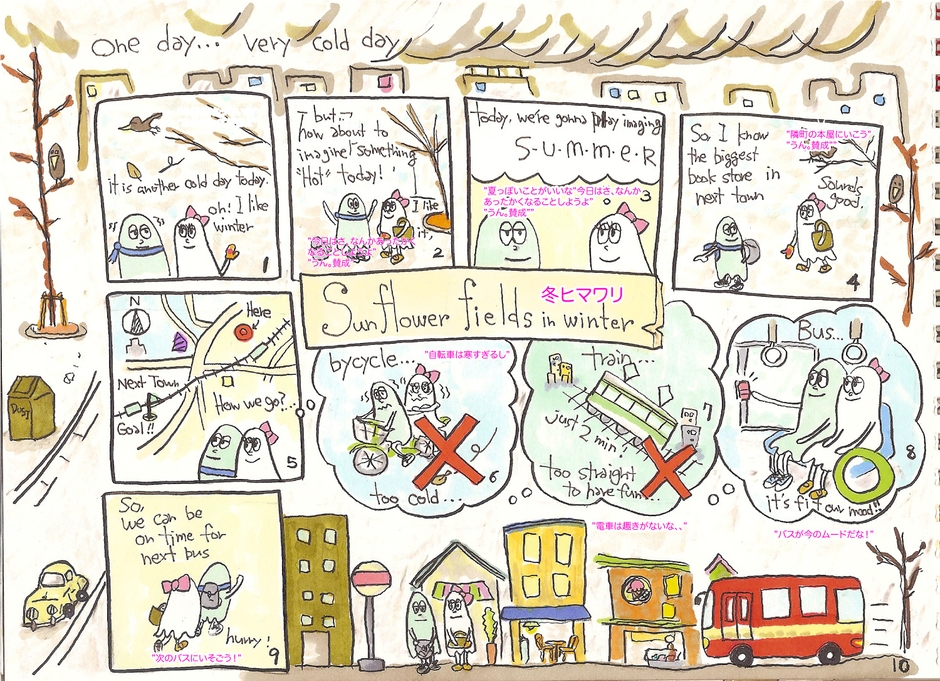 One day... very cold day
it is another cold day today.
oh! I like
winter
1
but...
how about to
imagine something
"Hot" today!
I like
it,
"今日はさ、なんかあったかく
なることしようよ"
"うん。賛成"
2
today, we're gonna play imaging
S・U・M・M・E・R
"夏っぽいことがいいな"今日はさ、なんか
あったかくなることしようよ"
"うん。賛成""
3
So, I know
the biggest
book store in
next town
"隣町の本屋にいこう"
"うん。賛成""
Sounds
good.
4
Sunflower fields in winter
冬ヒマワリ
N
Here
Next Town
Goal!!
How we go?...
5
bycycle...
"自転車は寒すぎるし"
too cold...
6
train...
just 2 min!
too straight
to have fun...
"電車は趣きがないな、、"
7
Bus...
it's fit our mood!!
"バスが今のムードだな！"
8
DUST
So,
we can be
on time for
next bus
hurry!
"次のバスにいそごう！"
9
10